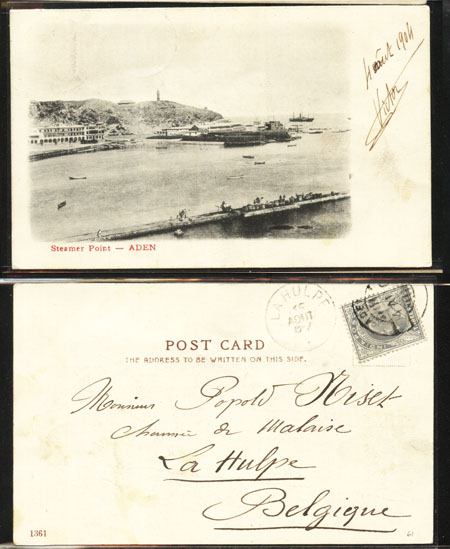 4 août 1904
Victor
Steamer Point — ADEN
LA HULPE
15
AOUT
ADEN
POST CARD
THE ADDRESS TO BE WRITTEN ON THIS SIDE.
Monsieur Popold Niset
chaussée de Malaise
La Hulpe
Belgique
1361